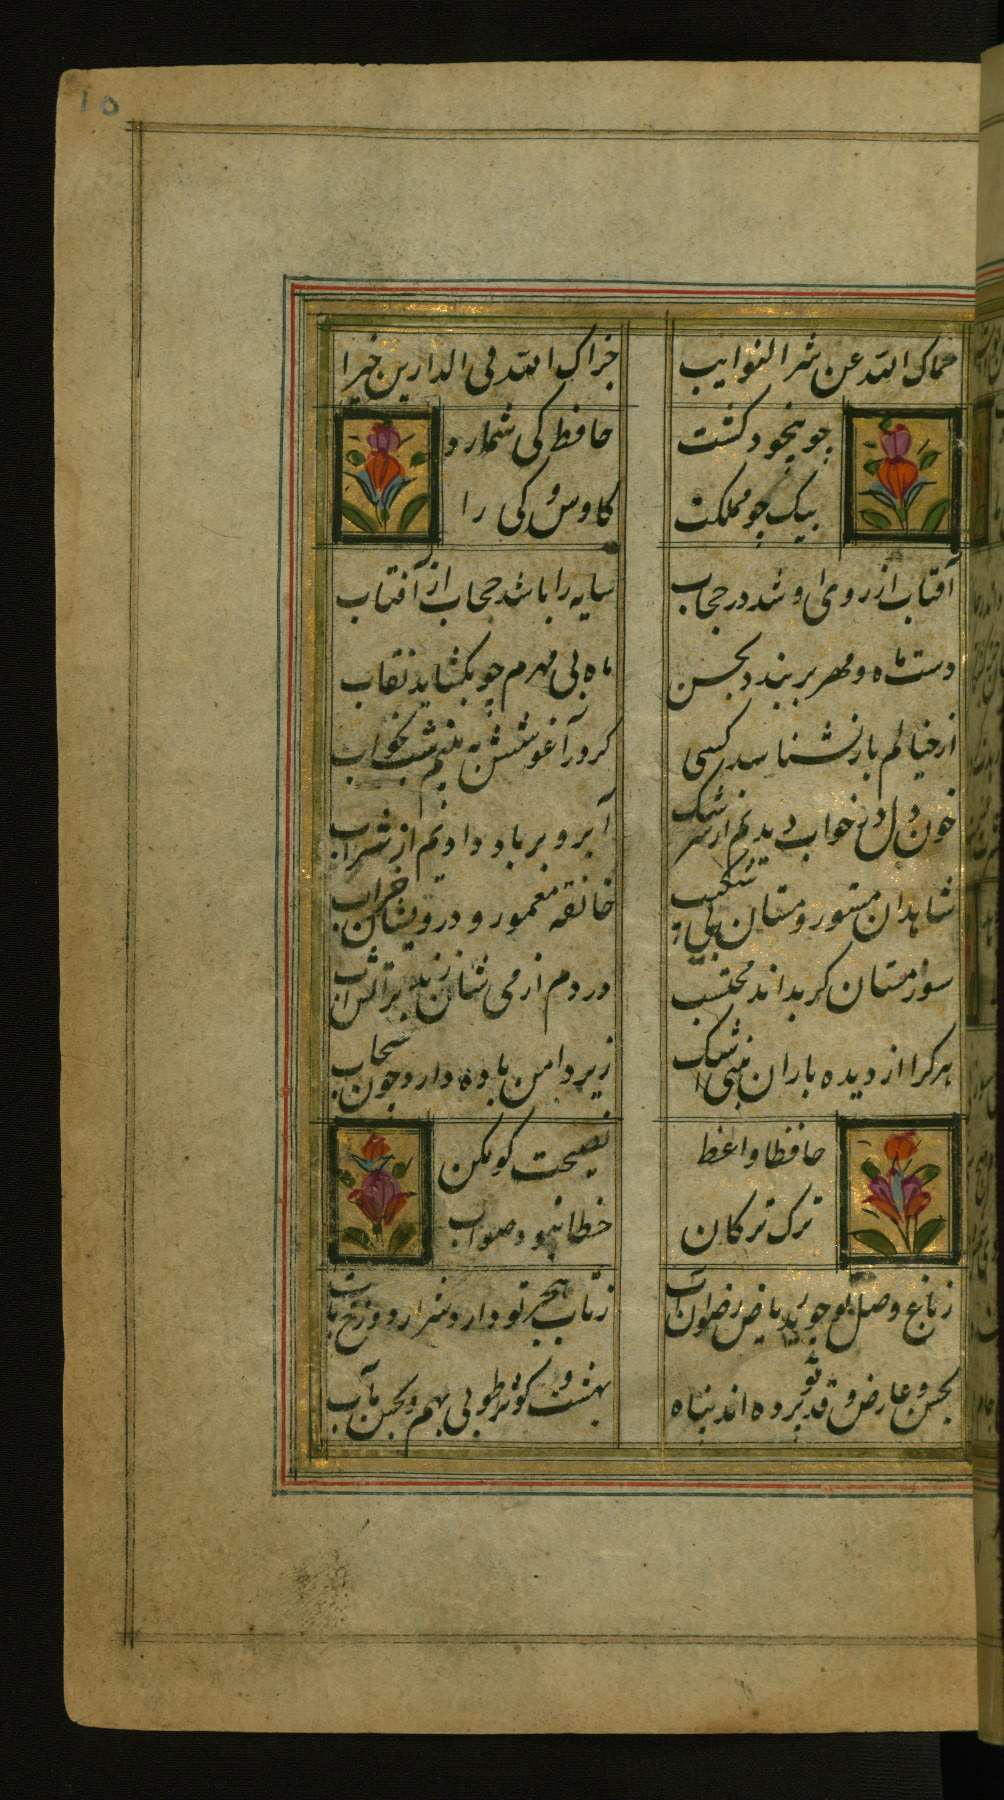 10
حماک الله عن شر النوایب
جزاک الله فی الدارین خیرا
چو بیخود کشت
حافظ کی شمارد
بیک جو مملکت
کاوس و کی را
آفتاب از روی او شد در حجاب
سایه را باشد حجاب از آفتاب
دست ماه و مهر بر بندد بحسن
ماه بی مهرم چو بکشاید نقاب
از خیالم باز نشناسد کسی
کر در آغوشش به بینم شب بخواب
خون دل در خواب دیدم از سرشک
آبرو بر باد دادیم از شراب
شاهدان مستور و مستان بی شکیب
خانقه معمور و درویشان خراب
سوز مستان کر بداند محتسب
در دم از می شان زند بر آتش آب
هر کرا از دیده باران نیست اشک
زیر دامن باده دارد چون سحاب
حافظا واعظ
نصیحت کو مکن
ترک ترکان
خطا نبود صواب
ز باغ وصل تو جوید ریاض رضوان آب
ز تاب هجر تو دارد شرار دوزخ تاب
بحسن و عارض و قد تو برده اند پناه
بهشت و کوثر و طوبی بهم و حسن مآب